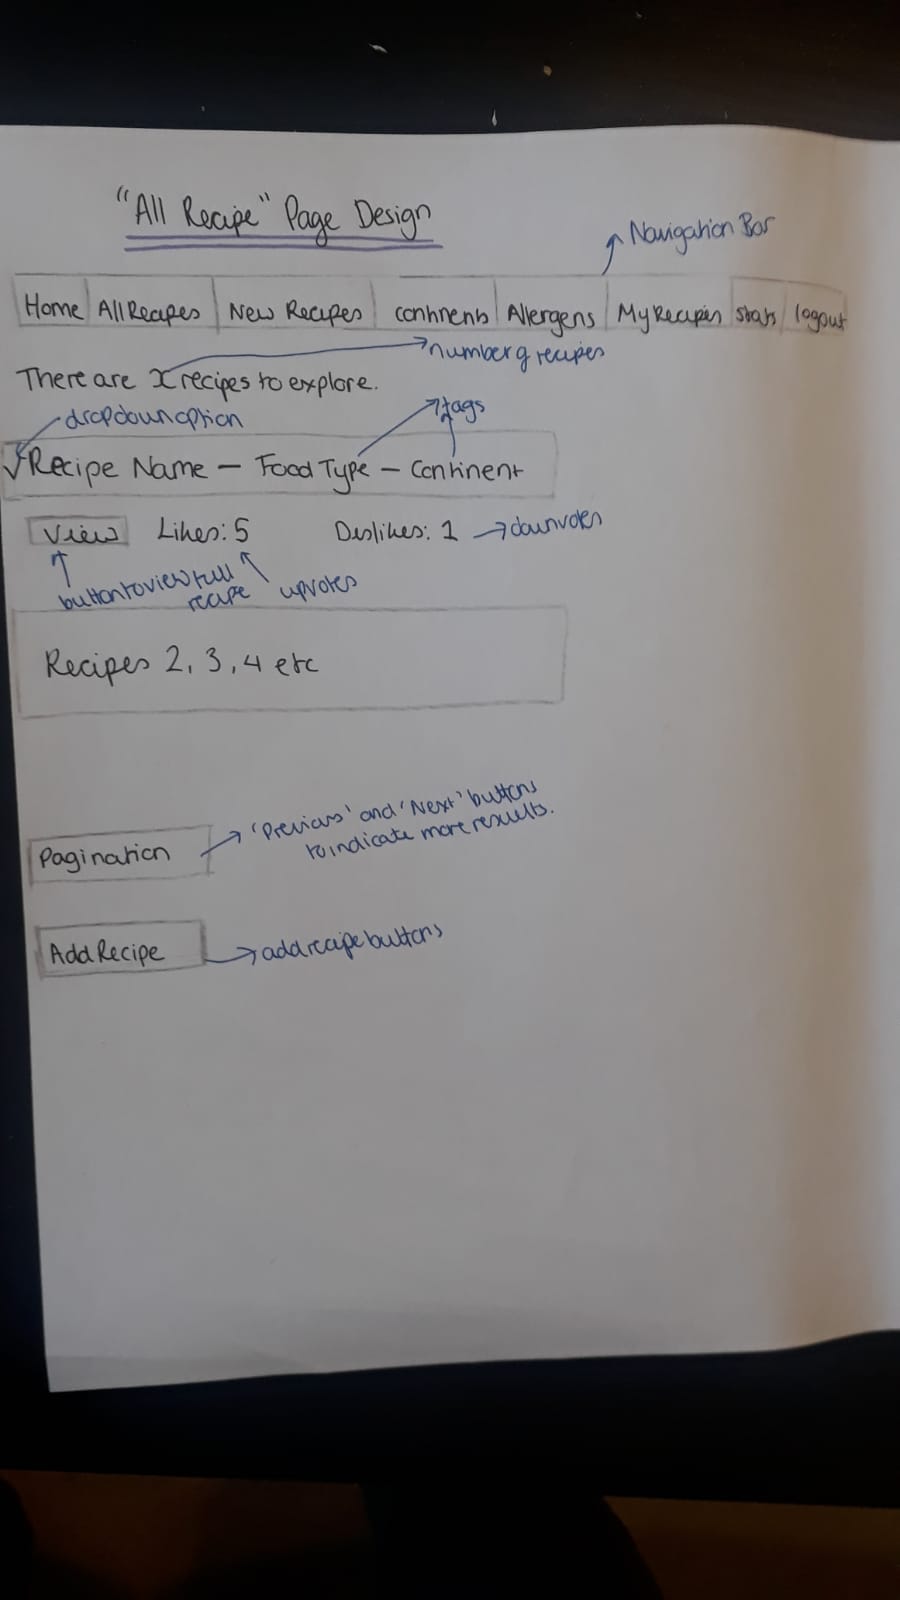 "All Recipe" Page Design
Navigation Bar
Home All Recipes New Recipes continents Allergens My Recipes stats logout
number of recipes
There are x recipes to explore.
dropdown option
tags
Recipe Name – Food Type – Continent
View Likes: 5 Dislikes: 1 downvotes
button to view full
recipe upvotes
Recipes 2, 3, 4 etc
'Previous' and 'Next' buttons
to indicate more results.
Pagination
Add Recipe add recipe buttons